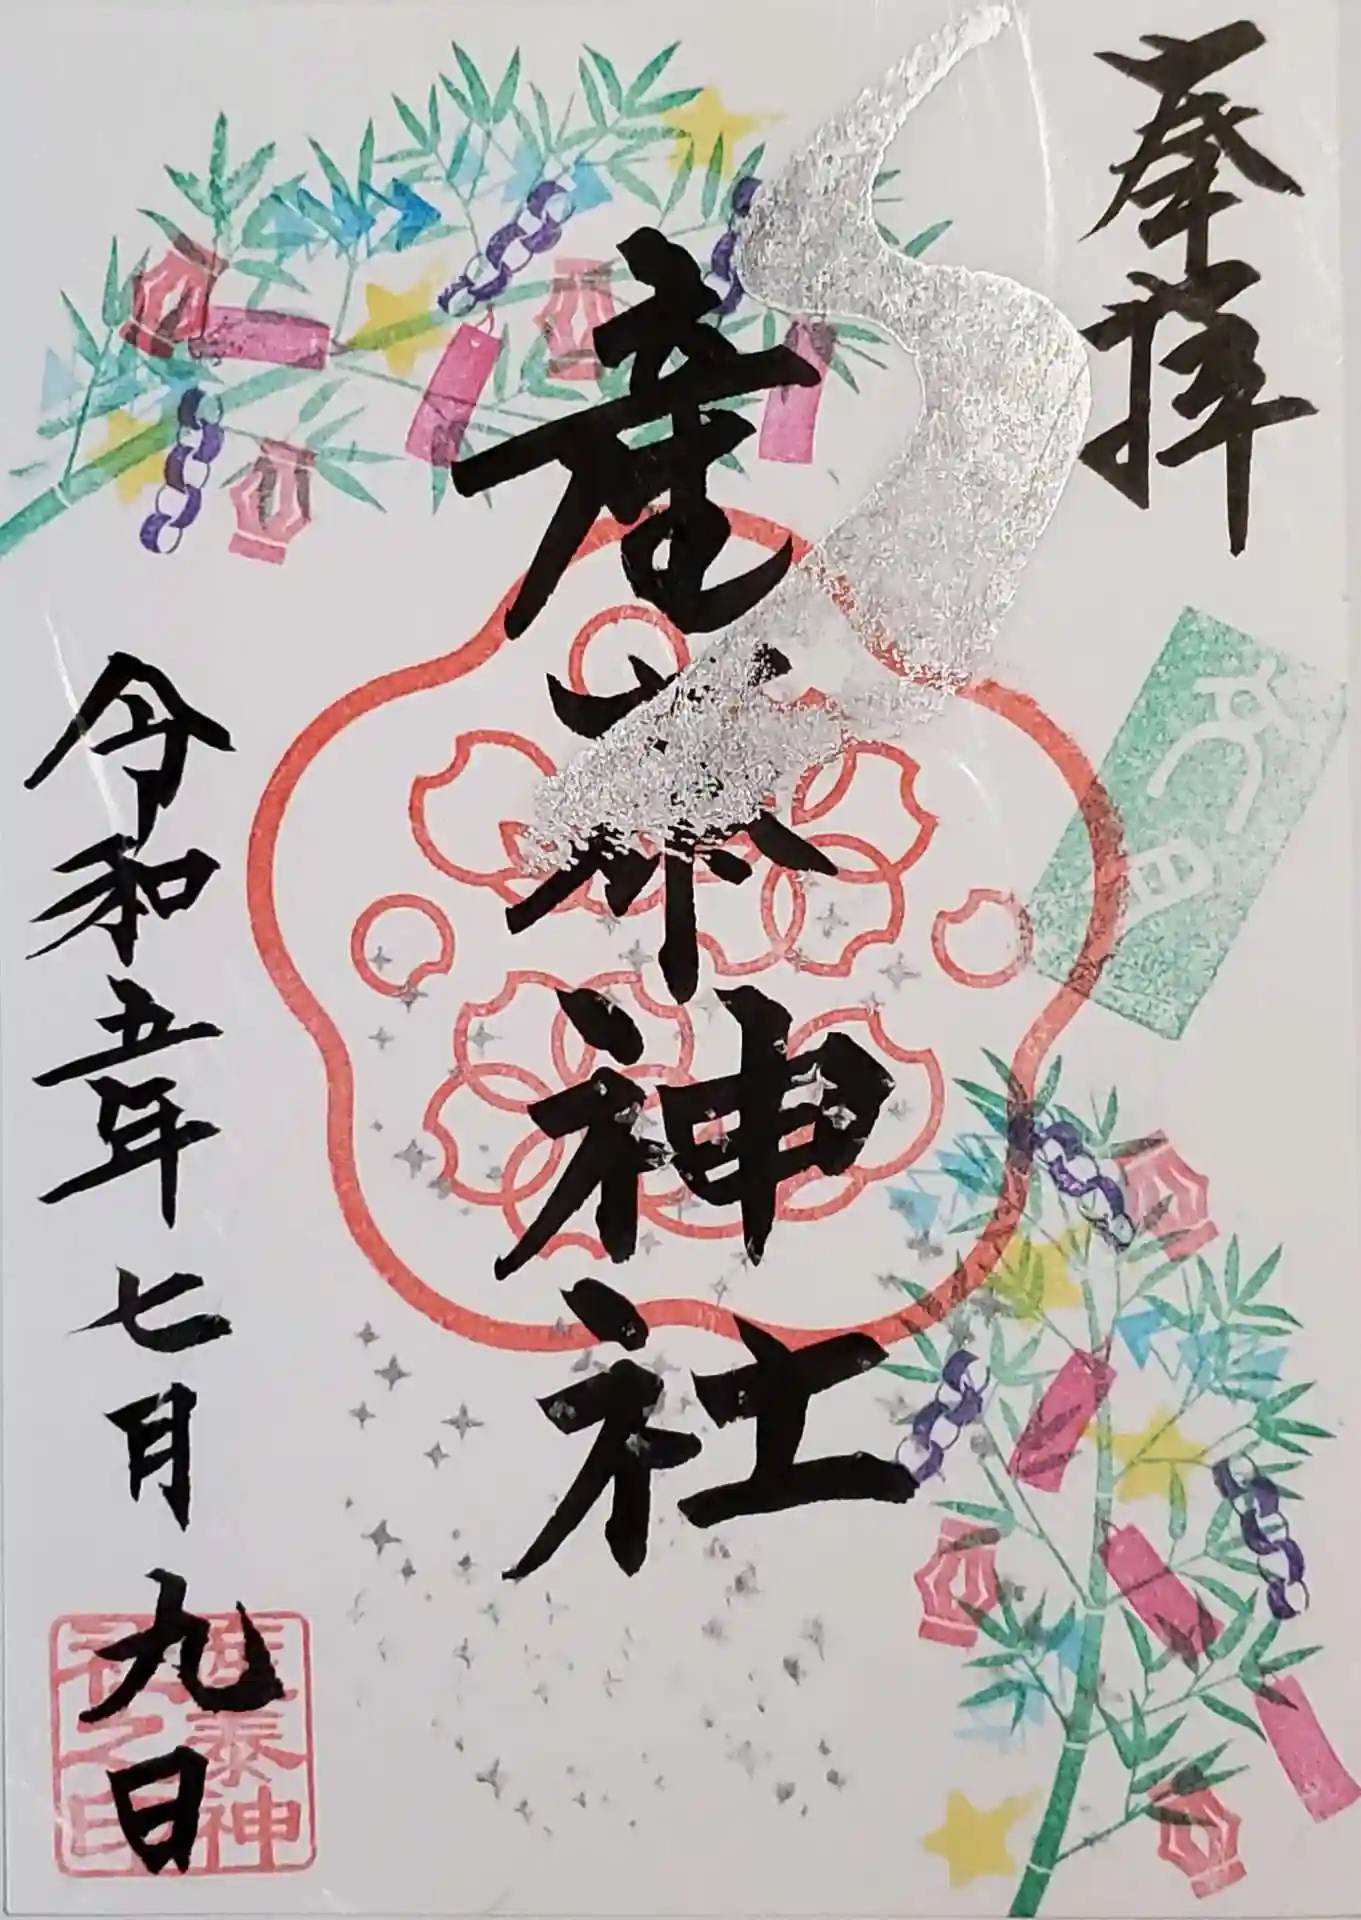 奉拝
文月
産泰神社
令和五年七月九日
産泰神
社之印